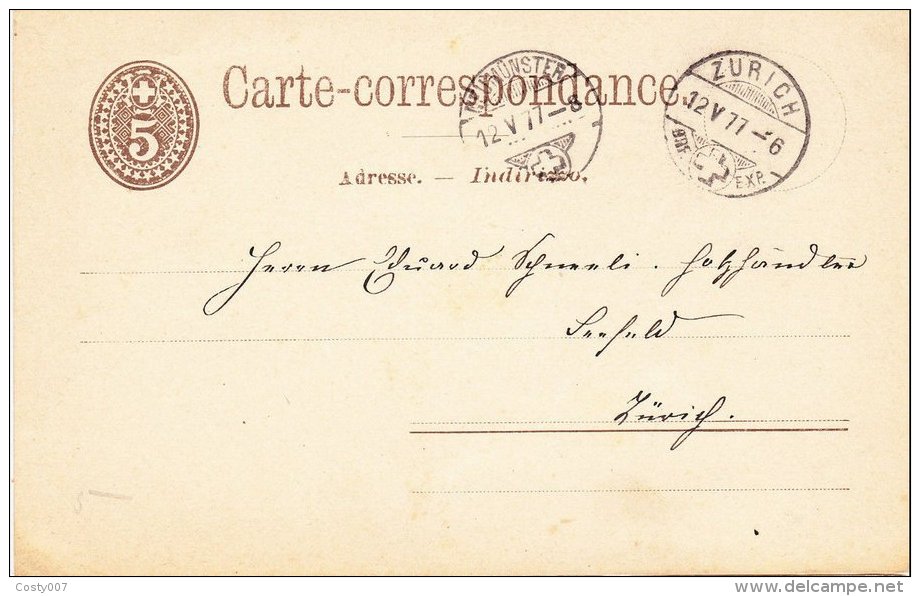 5
Carte-correspondance.
Adresse. — Indirizzo.
12 V 77 – 8
ZÜRICH
12 V 77 – 6
EXP.
Herrn Eduard Schneeli. Holzhändler
Seefeld
Zürich.
5
Costy007
www.delcampe.net